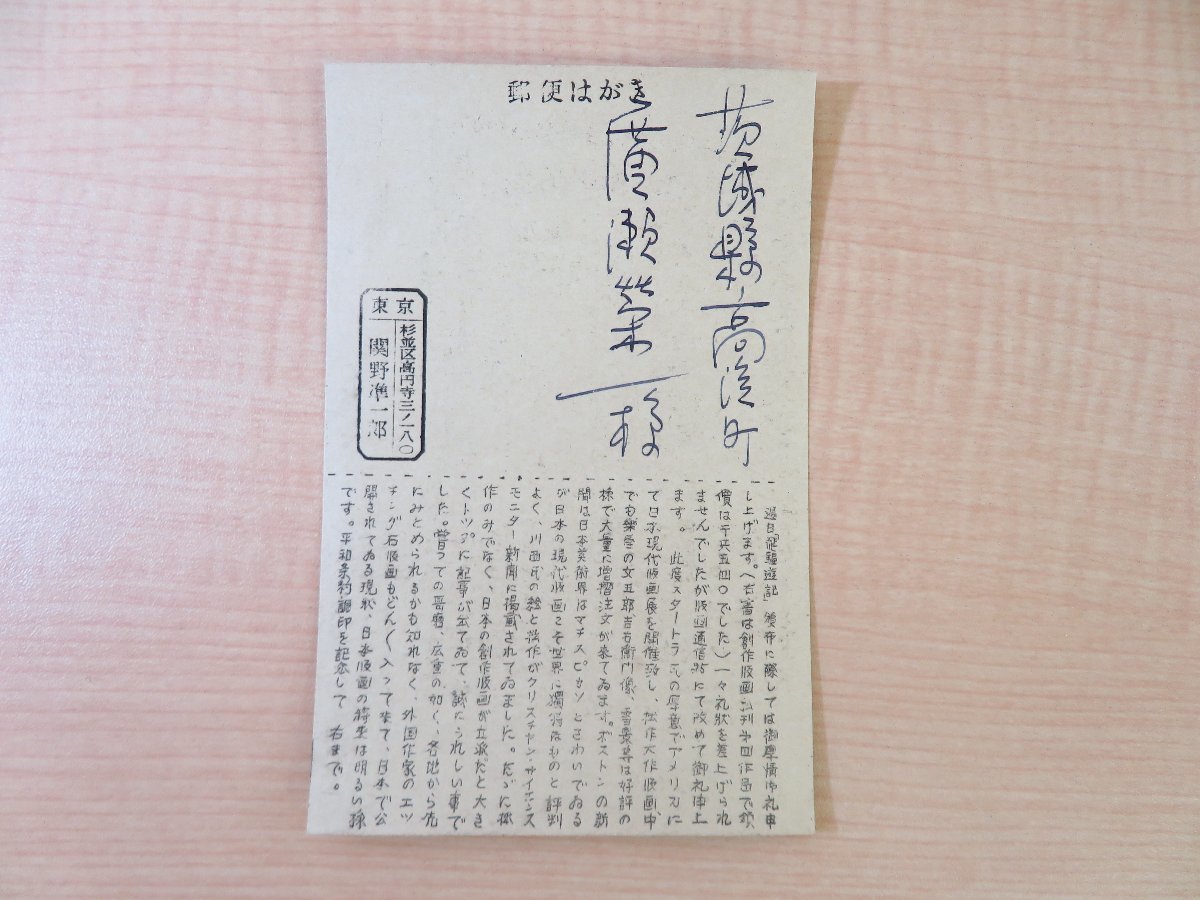 郵便はがき
茨城縣高浜町
廣瀬榮一様
東京
杉並区高円寺三ノ一八〇
関野準一郎
過日「飛驒遊記」頒布に際しては御厚情御礼申
し上げます。(右書は創作版画公刊才四回作品で領
價は千弐五〇でした)一々礼状を差上げられ
ませんでしたが版画通信にて改めて御礼申上
ます。 此度スタートラ氏の厚意でアメリカに
て日本現代版画展を開催致し、拙作大作版画中
でも樂堂の文五郎吉右衛門像、雪景等は好評の
様で大量に増摺注文が来てゐます。ボストンの新
聞は日本美術界はマチスピカソとさわいでゐる
が日本の現代版画こそ世界に獨特なものと評判
よく、川西氏の絵と拙作がクリスチャン・サイエンス
モニター新聞に掲載されてゐました。たゞに拙
作のみでなく、日本の創作版画が立派だと大き
くトップに記事が出てゐて、誠にうれしい事で
した。嘗つての哥麿、広重の如く、各地から先
にみとめられるかも知れなく、外国作家のエッ
チング石版画もどん〱入って来て、日本で公
開されてゐる現状、日本版画の将来は明るい様
です。平和条約調印を記念して 右まで。